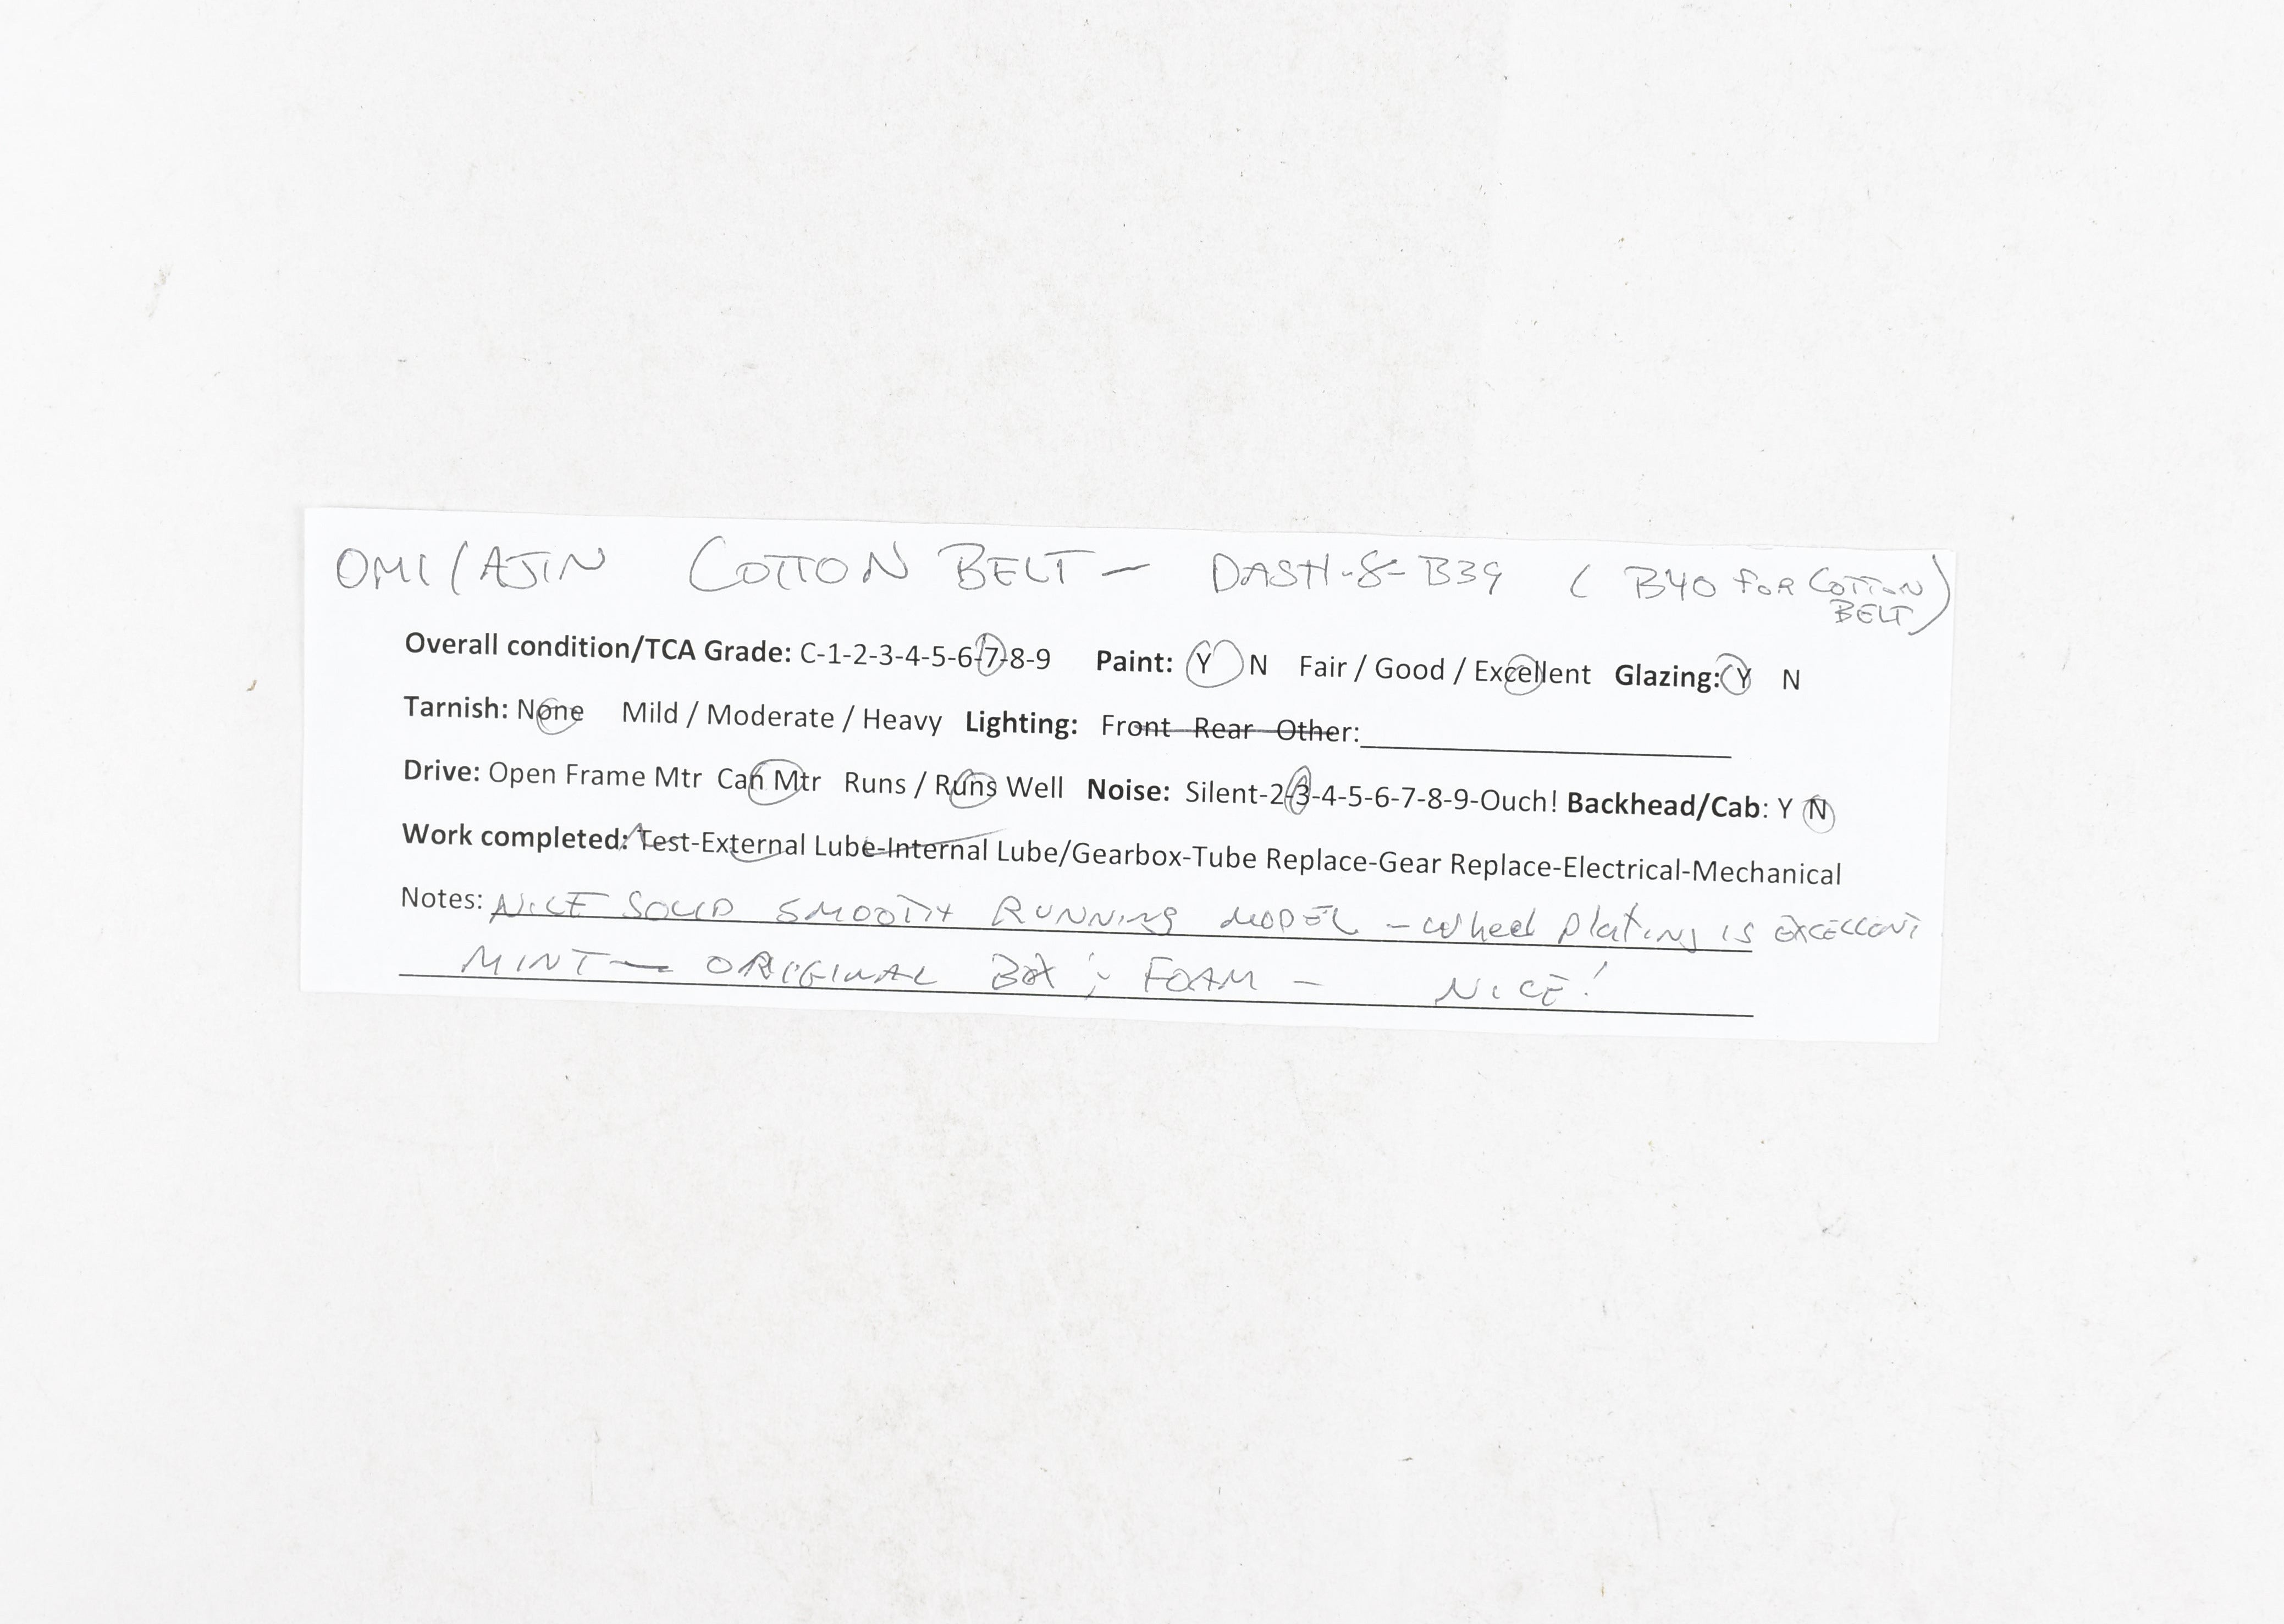 OMI/AJIN COTTON BELT - DASH-8-B39 ( B40 FOR COTTON
BELT)
Overall condition/TCA Grade: C-1-2-3-4-5-6-7-8-9 Paint: Y N Fair / Good / Excellent Glazing: Y N
Tarnish: None Mild / Moderate / Heavy Lighting: Front Rear Other:
Drive: Open Frame Mtr Can Mtr Runs / Runs Well Noise: Silent-2-3-4-5-6-7-8-9-Ouch! Backhead/Cab: Y N
Work completed: Test-External Lube-Internal Lube/Gearbox-Tube Replace-Gear Replace-Electrical-Mechanical
Notes: NICE SOLID SMOOTH RUNNING MODEL - Wheel Plating IS EXCELLENT
MINT - ORIGINAL BOX ; FOAM - NICE!